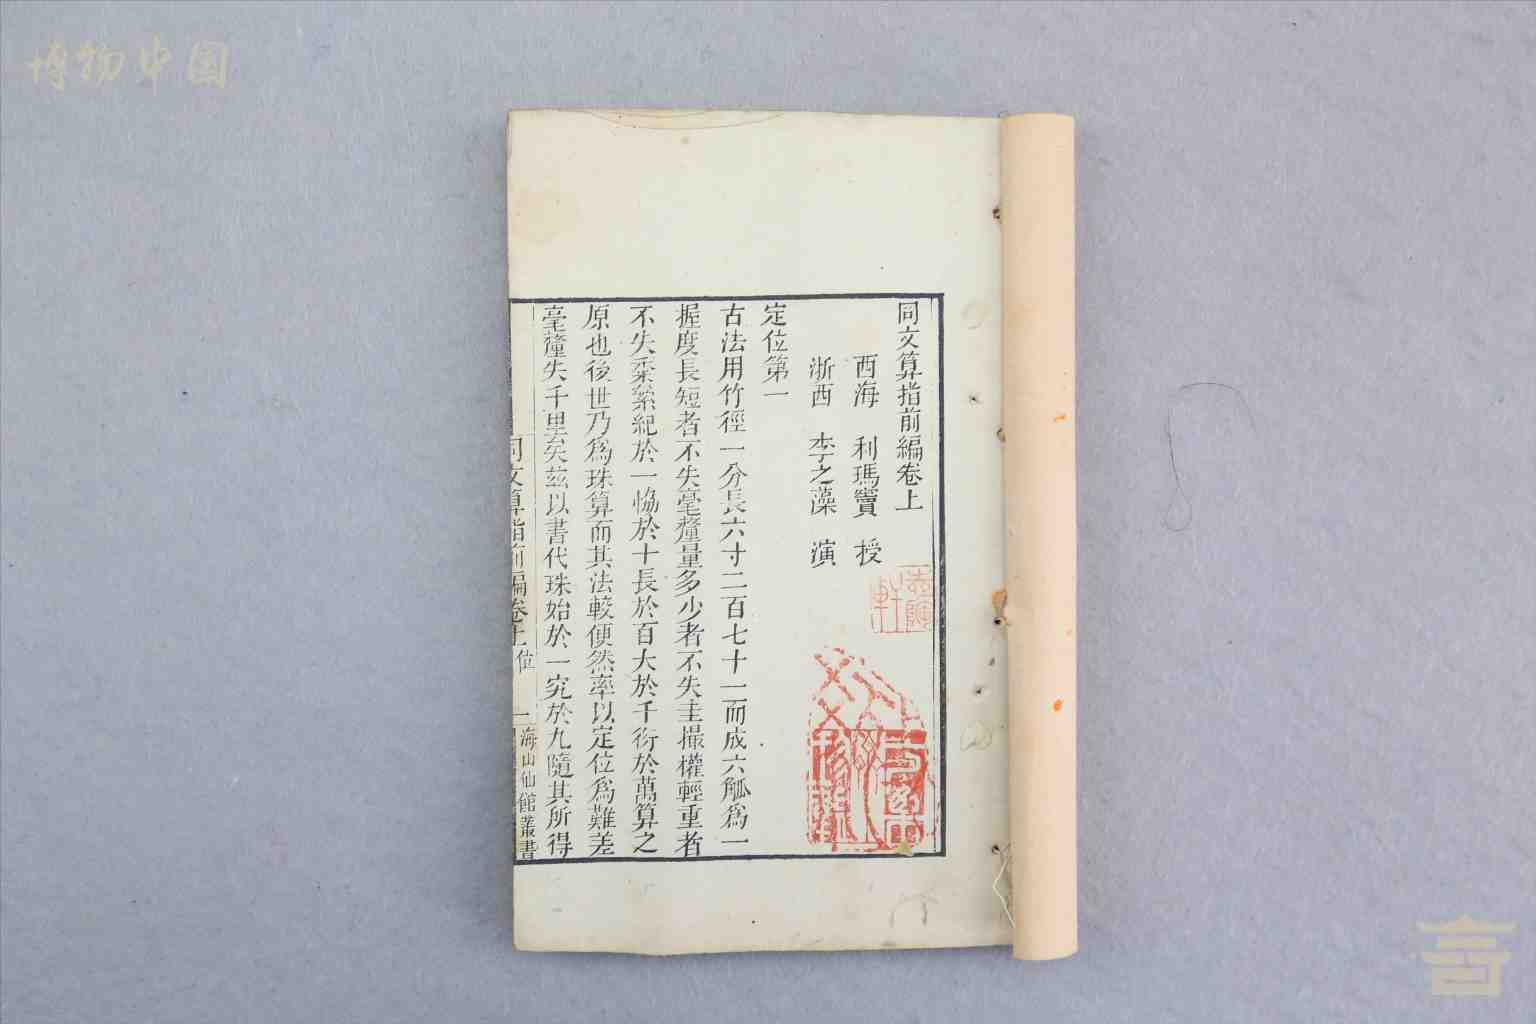 博物中国
同文算指前編卷上
西海 利瑪竇 授
浙西 李之藻 演
定位第一
古法用竹徑一分長六寸二百七十一而成六觚為一
握度長短者不失毫釐量多少者不失圭撮權輕重者
不失黍絫紀於一協於十長於百大於千衍於萬算之
原也後世乃為珠算而其法較便然率以定位為難差
毫釐失千里矣茲以書代珠始於一究於九隨其所得
同文算指前編卷上 位 一 海山仙館叢書